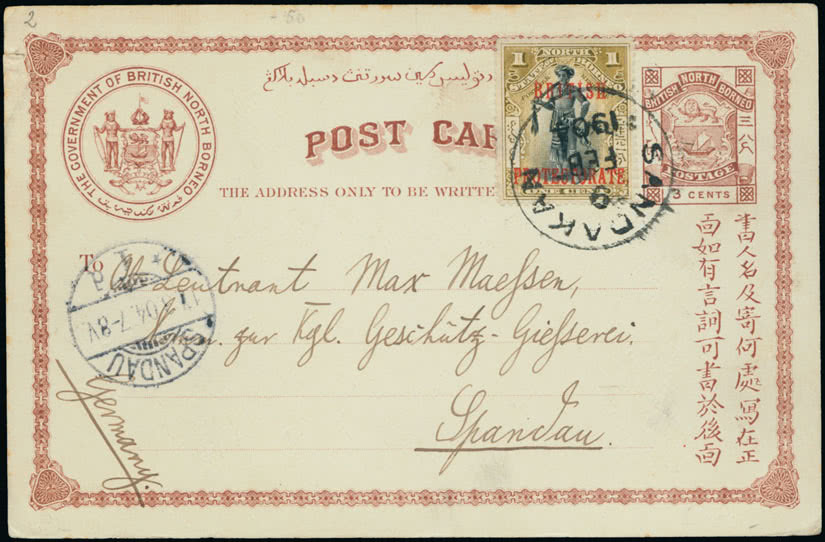 2
-50
THE GOVERNMENT OF BRITISH NORTH BORNEO
POST CAR
THE ADDRESS ONLY TO BE WRITTE
1 NORTH 1
STATE OF BORNEO
BRITISH
PROTECTORATE
ONE CENT
SANDAKAN
9
FEB
1904
BRITISH NORTH BORNEO
POSTAGE
3 CENTS
To
Ob. Leutnant Max Maessen,
Kom. zur Kgl. Geschütz-Giesserei.
Spandau.
Germany.
SPANDAU
04.7-8V.
書人名及寄何處寫在正
面如有言詞可書於後面